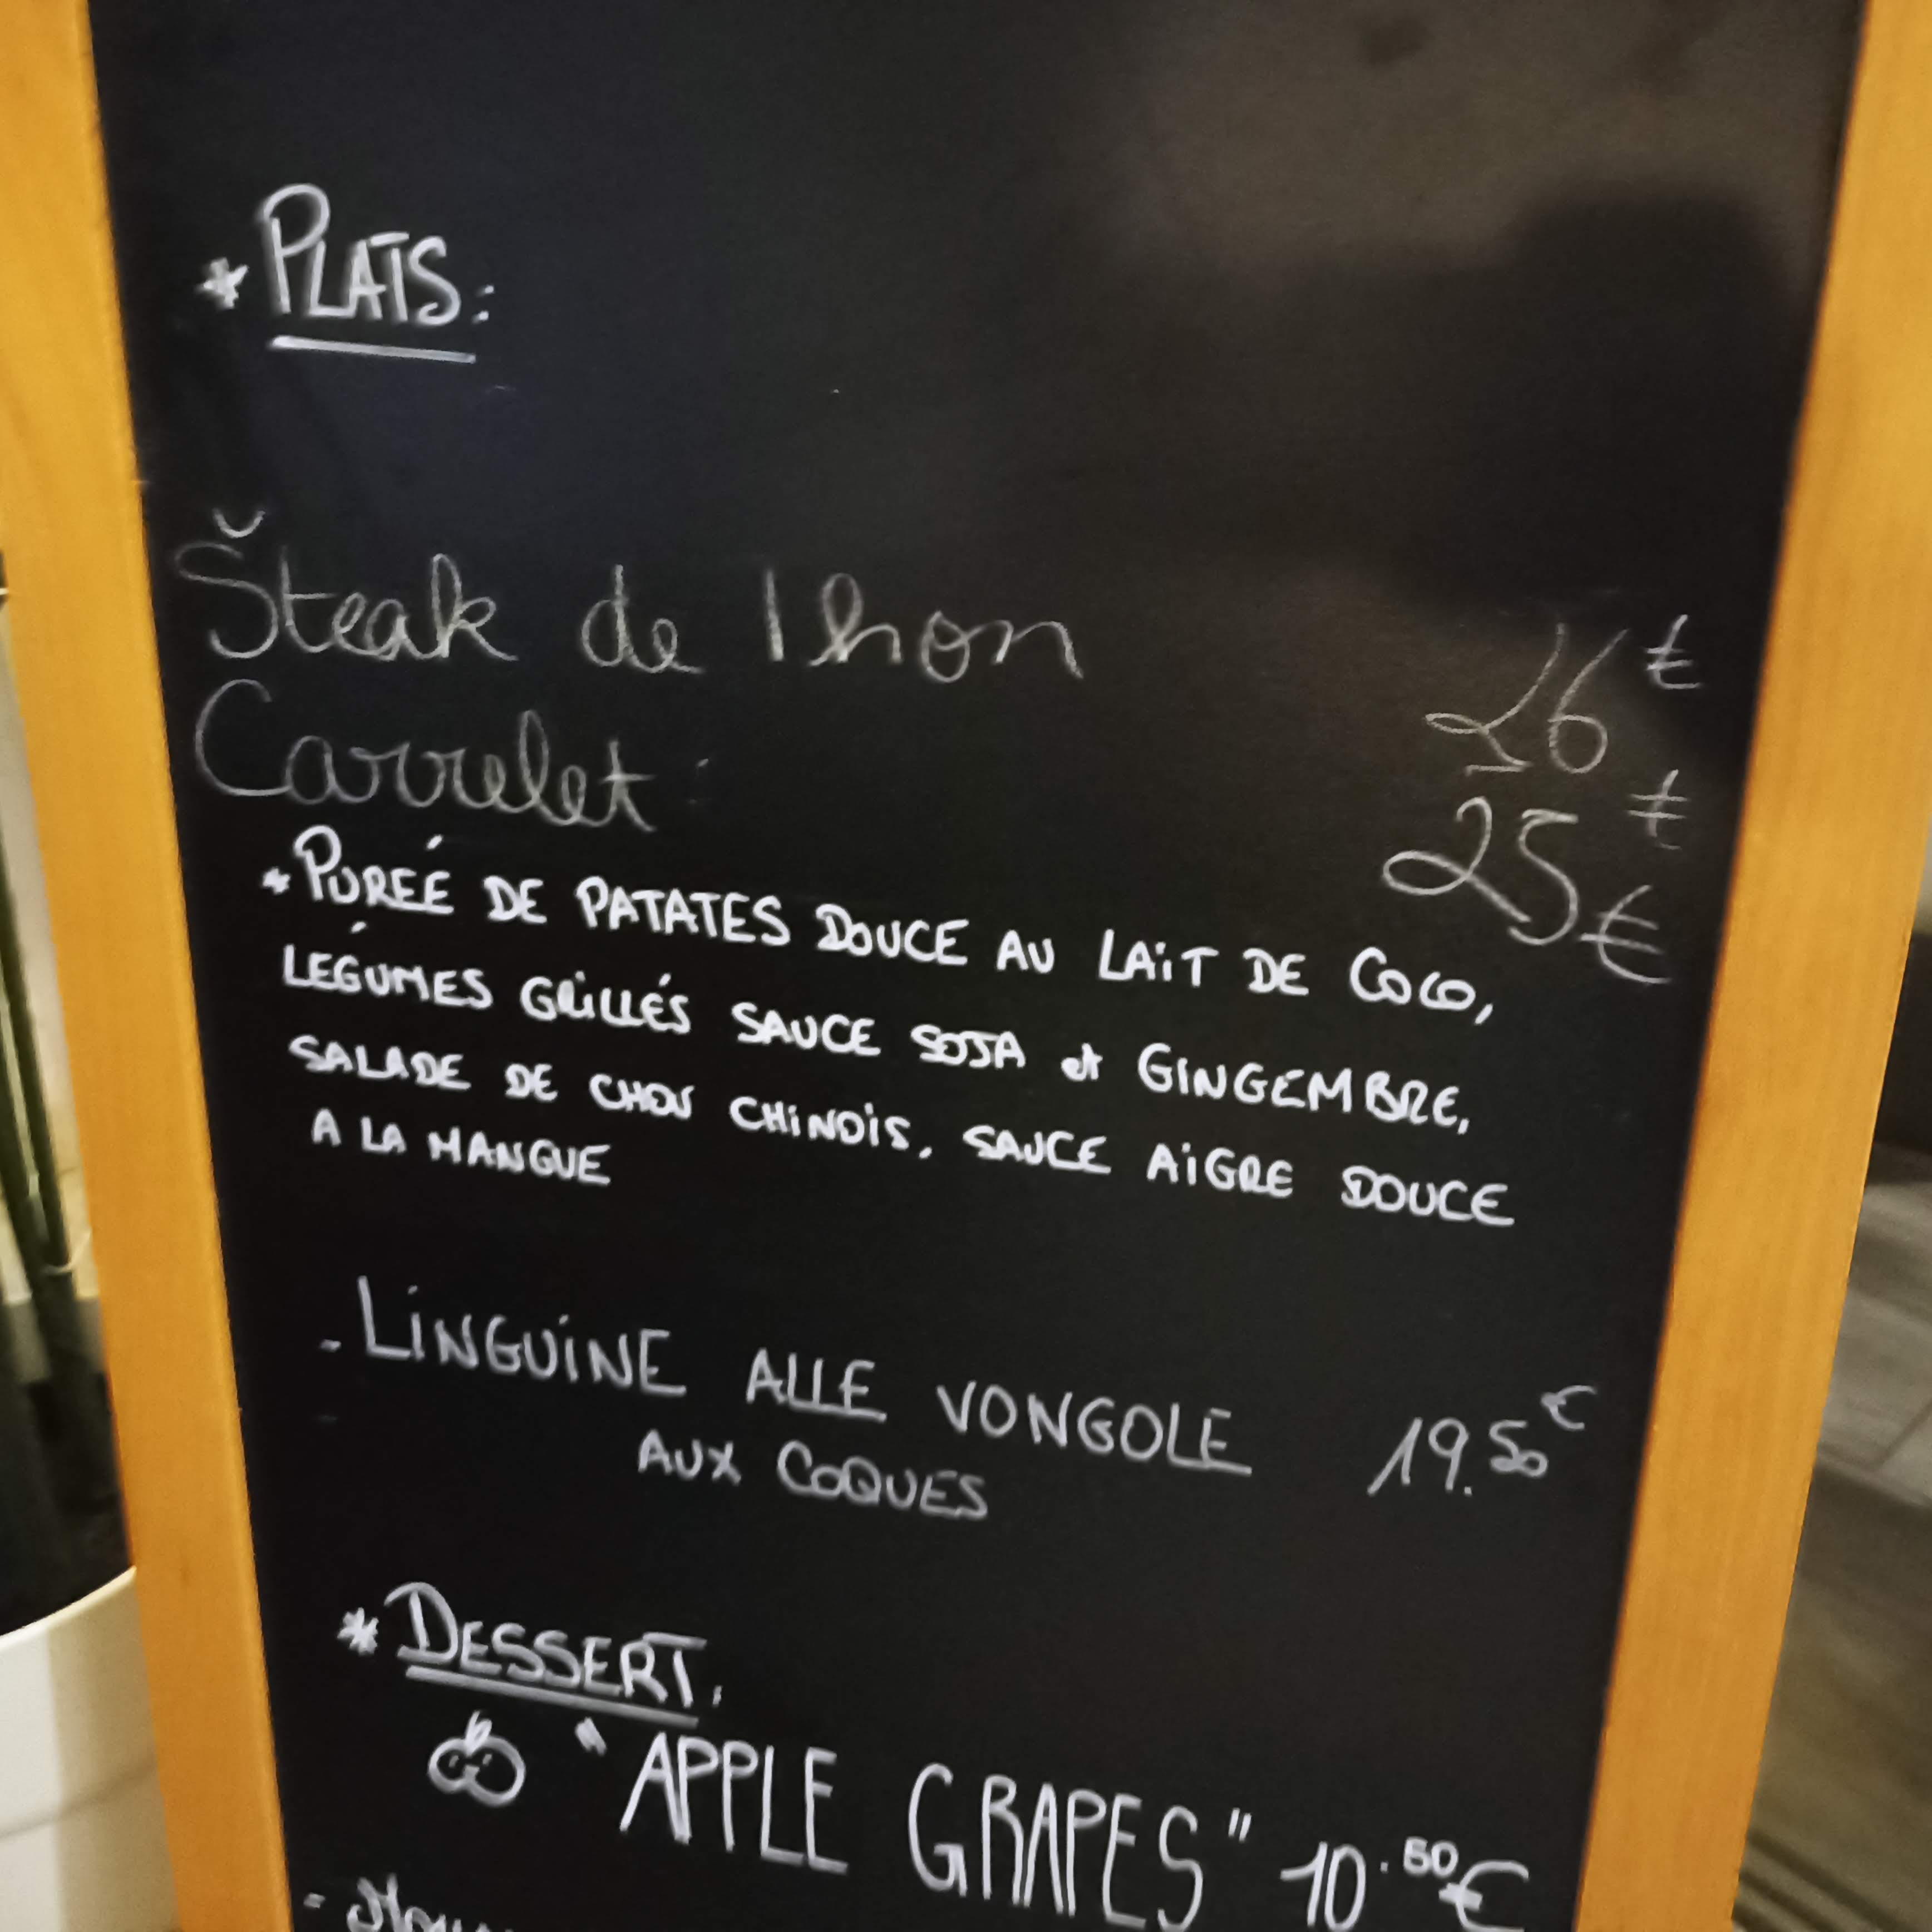 * PLATS:
Steak de Thon 26€
Carrelet: 25€
* PURÉE DE PATATES DOUCE AU LAIT DE COCO,
LÉGUMES GRILLÉS SAUCE SOJA et GINGEMBRE,
SALADE DE CHOU CHINOIS, SAUCE AIGRE DOUCE
A LA MANGUE
- LINGUINE ALLE VONGOLE 19.50€
AUX COQUES
* DESSERT.
"APPLE GRAPES" 10.50€